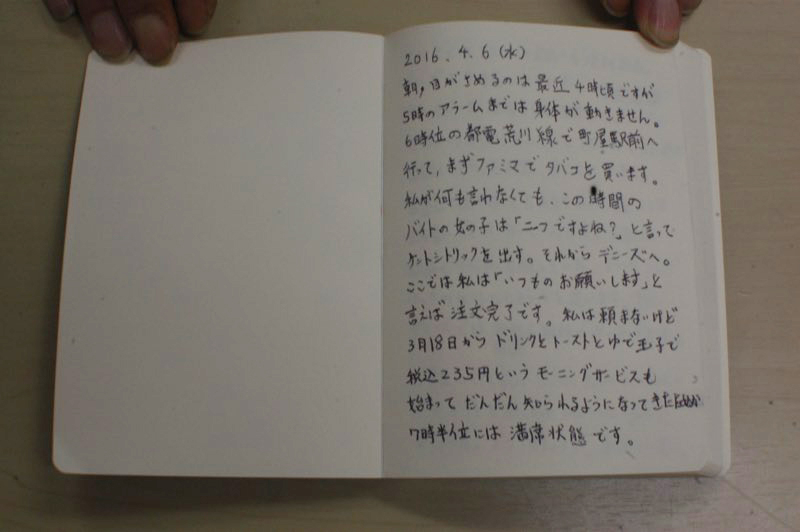 2016.4.6(水)
朝、目がさめるのは最近4時頃ですが
5時のアラームまでは身体が動きません。
6時位の都電荒川線で町屋駅前へ
行って、まずファミマでタバコを買います。
私が何も言わなくても、この時間の
バイトの女の子は「二つですよね?」と言って
ケントシトリックを出す。それからデニーズへ。
ここでは私は「いつものお願いします」と
言えば注文完了です。私は頼まないけど
3月18日からドリンクとトーストとゆで玉子で
税込235円というモーニングサービスも
始まってだんだん知られるようになってきたためか
7時半位には満席状態です。